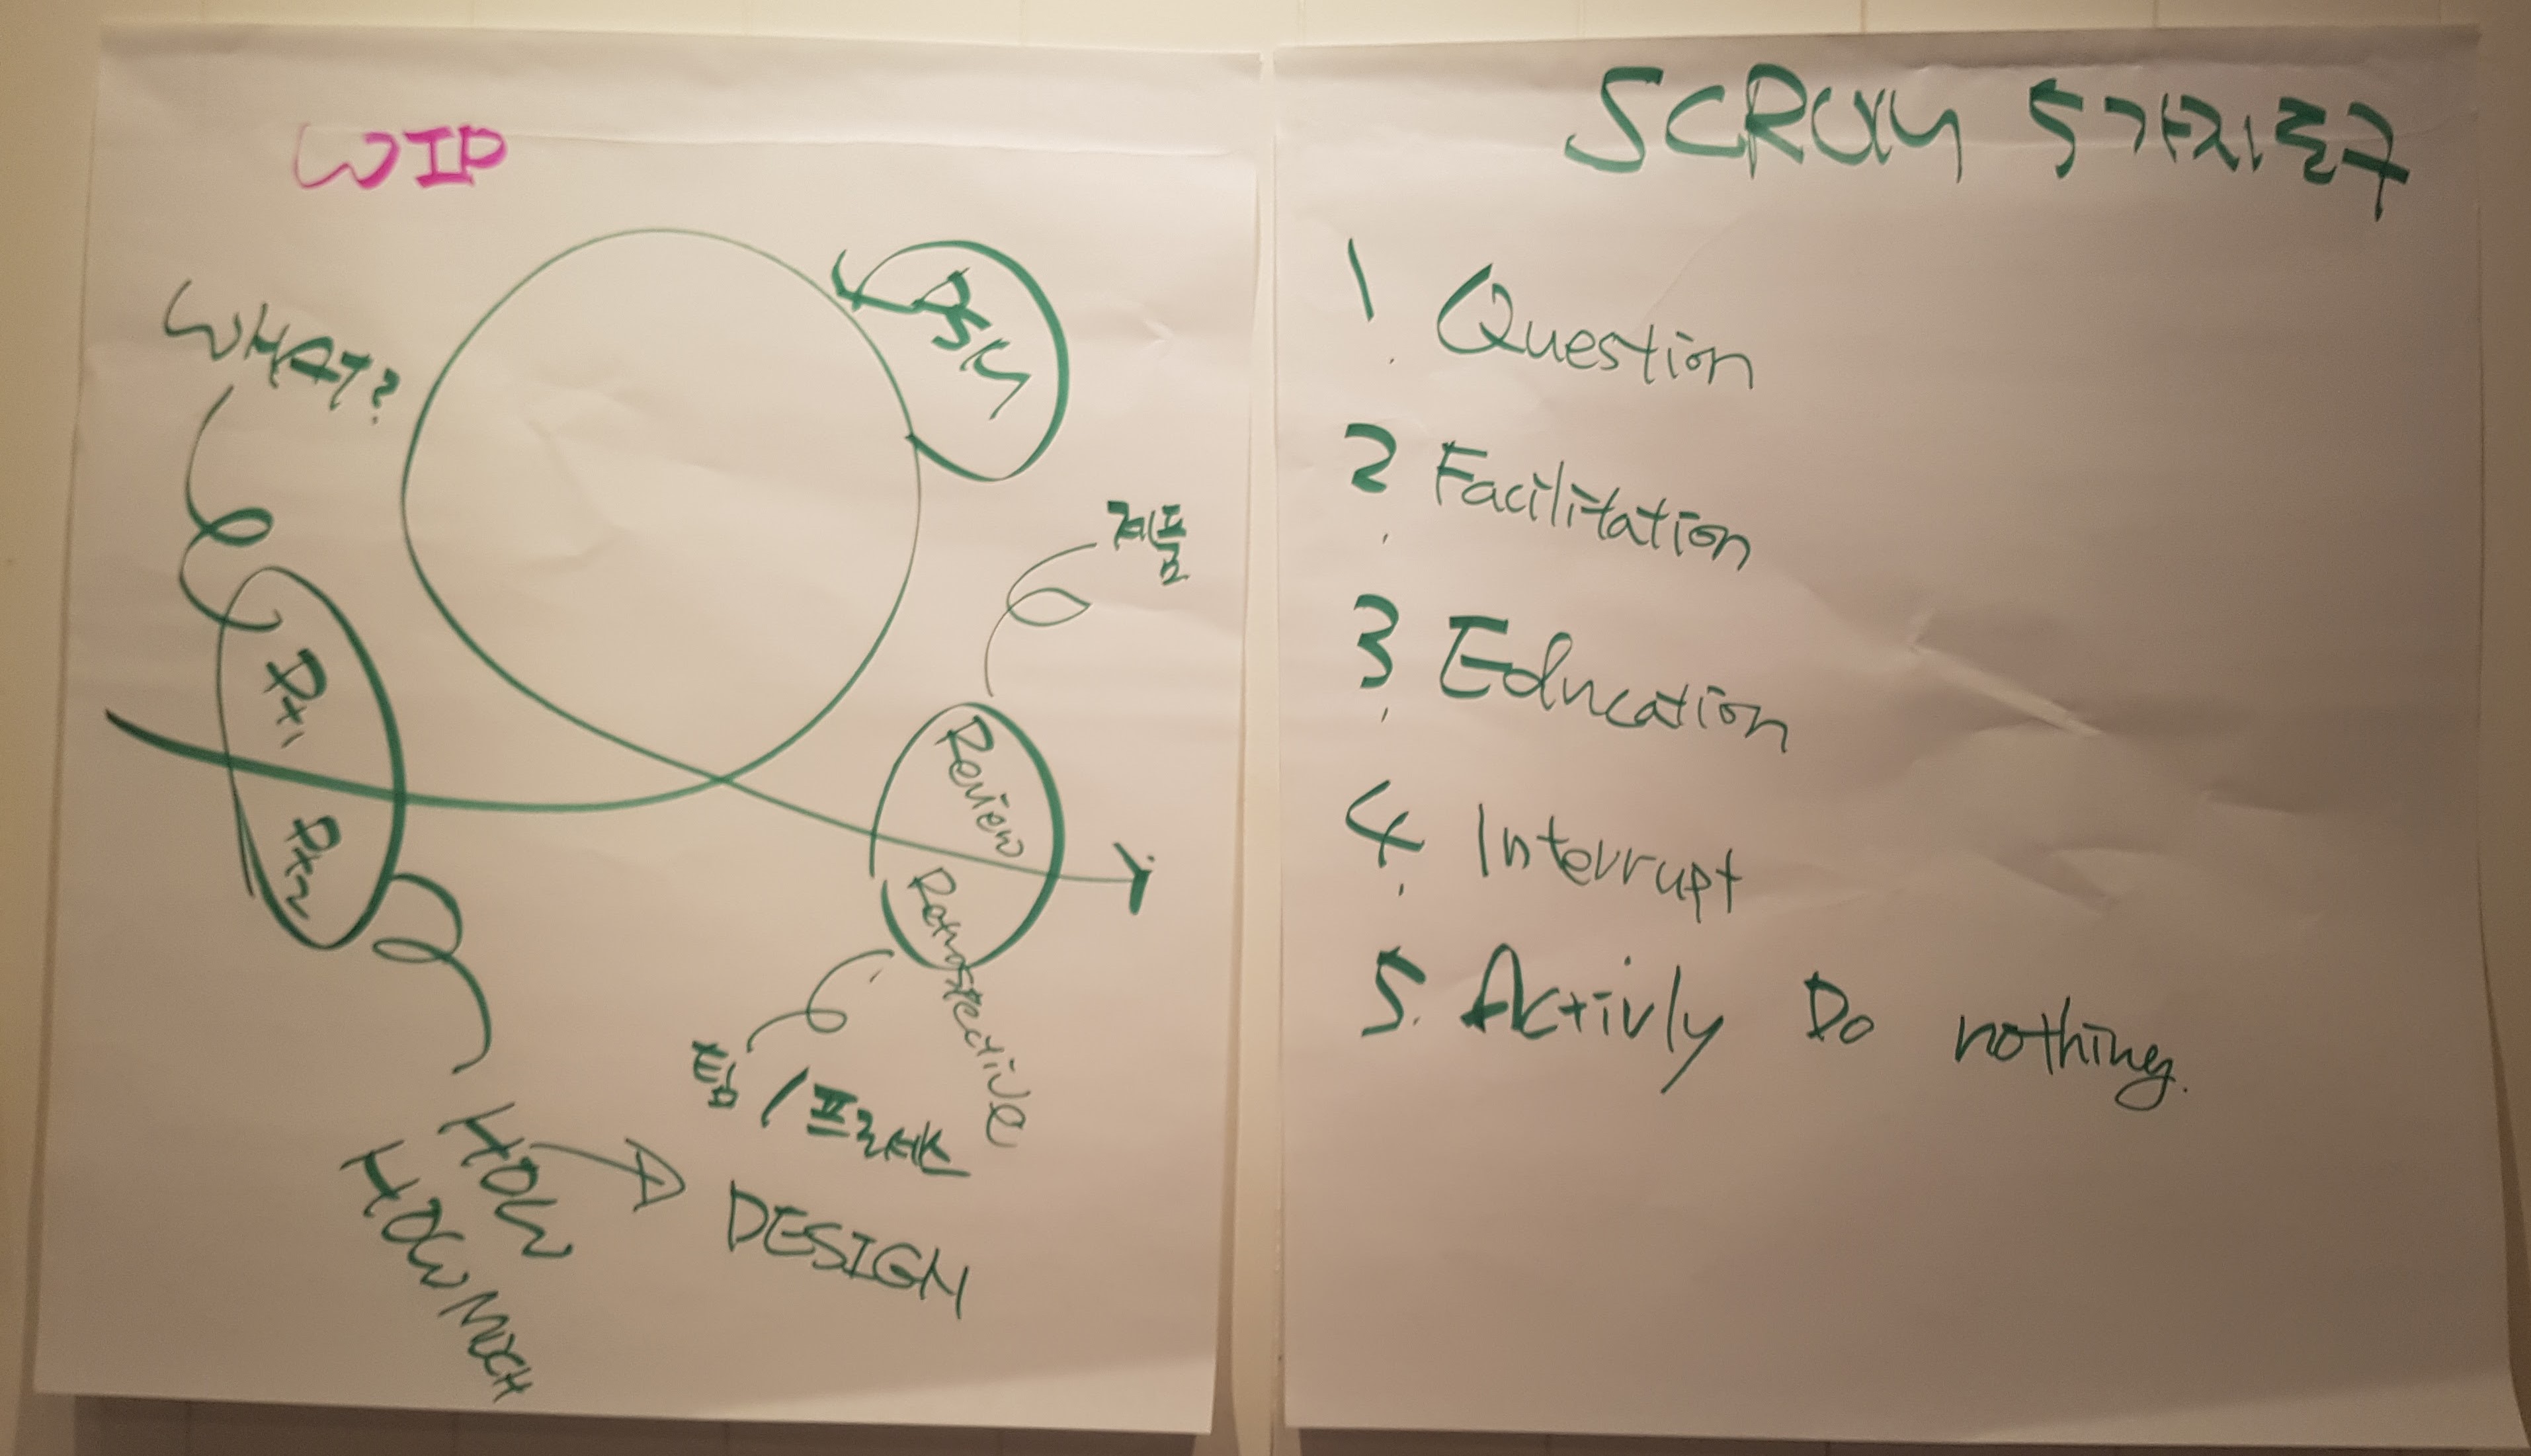 WIP
WHAT?
DSM
제품
Px1
Px2
Review
Retrospective
팀 / 프로세스
HOW
HOW MUCH
DESIGN
SCRUM 5가지 도구
1. Question
2. Facilitation
3. Education
4. Interrupt
5. Activly Do nothing.